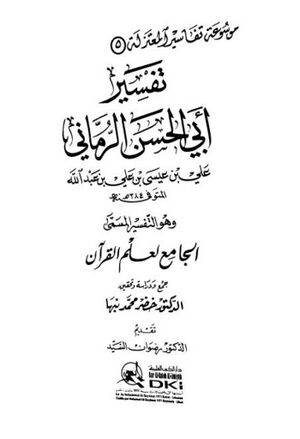 موسوعة تفاسير المعتزلة ٥
تفسير
أبي الحسن الرماني
علي بن عيسى بن علي بن عبد الله
المتوفى ٣٨٤ هـ
وهو التفسير المسمى
الجامع لعلم القرآن
جمع ودراسة وتحقيق
الدكتور خضر محمد نبها
تقديم
الدكتور رضوان السيد
دار الكتب العلمية
Dar Al-Kotob Al-ilmiyah
DKi